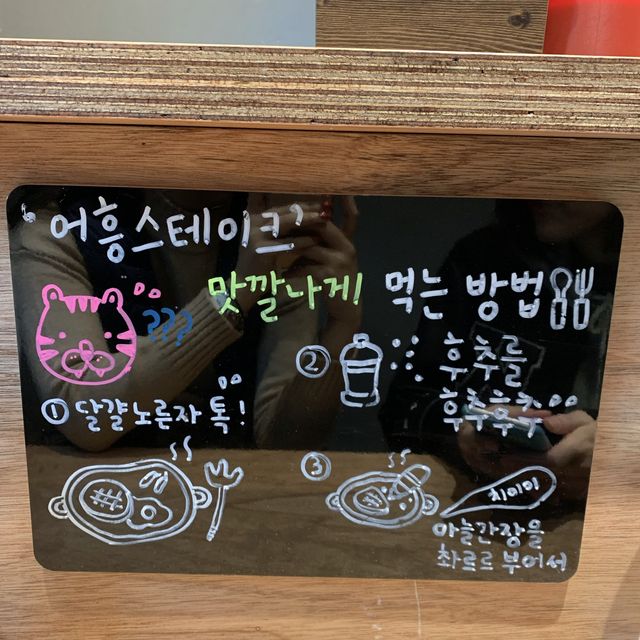 '어흥스테이크'
맛깔나게! 먹는 방법
???
① 달걀노른자 톡!
② 후추를
후추후추..
③
치이익
마늘간장을
촤르르 부어서